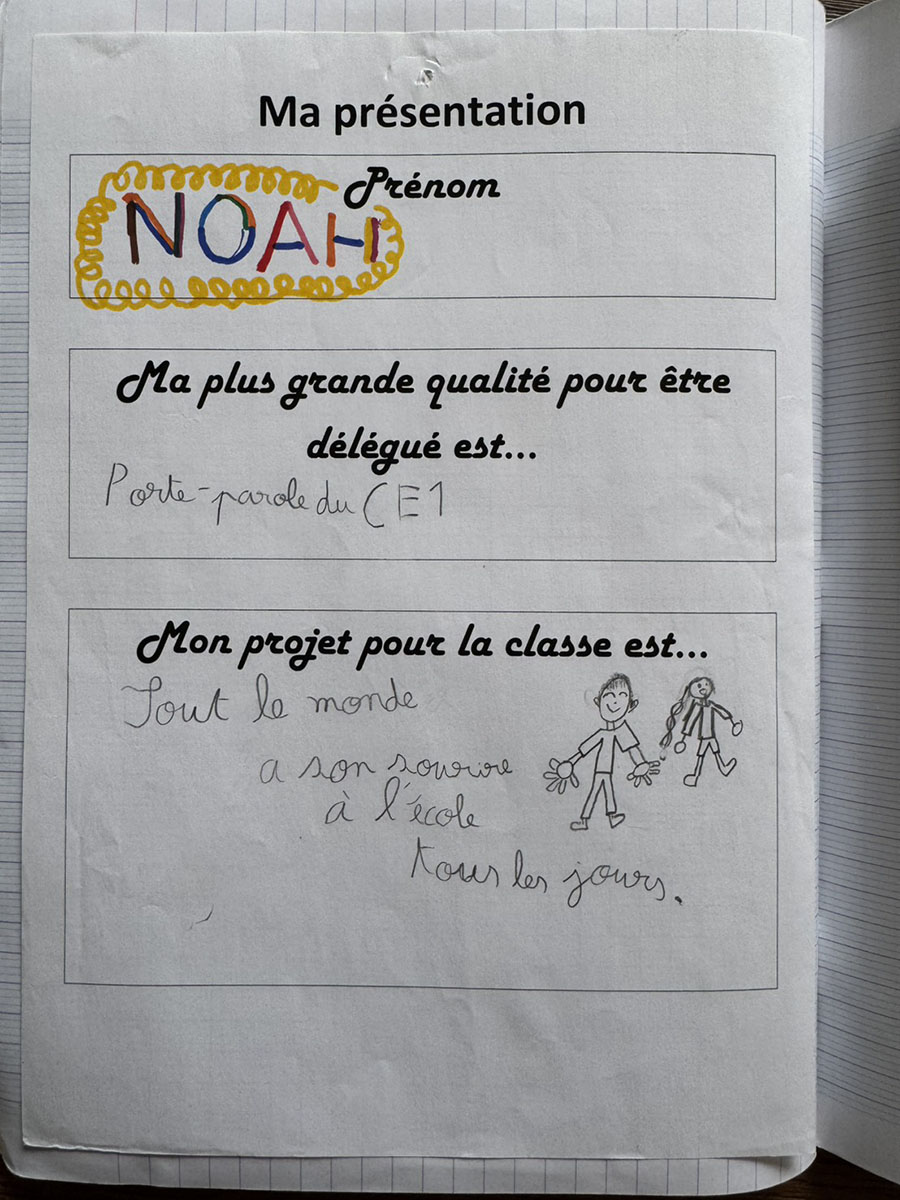 Ma présentation
Prénom
NOAH
Ma plus grande qualité pour être
délégué est...
Porte-parole du CE1
Mon projet pour la classe est...
Tout le monde
a son sourire
à l'école
tous les jours.